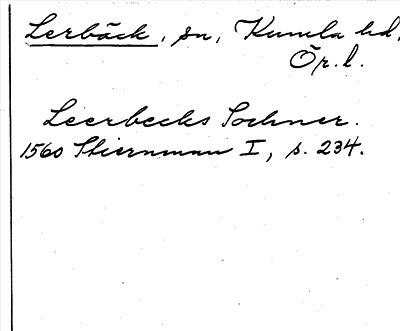 Lerbäck, sn, Kumla hd,
Ör. l.
Leerbecks Sochner.
1560 Stiernman I, s. 234.